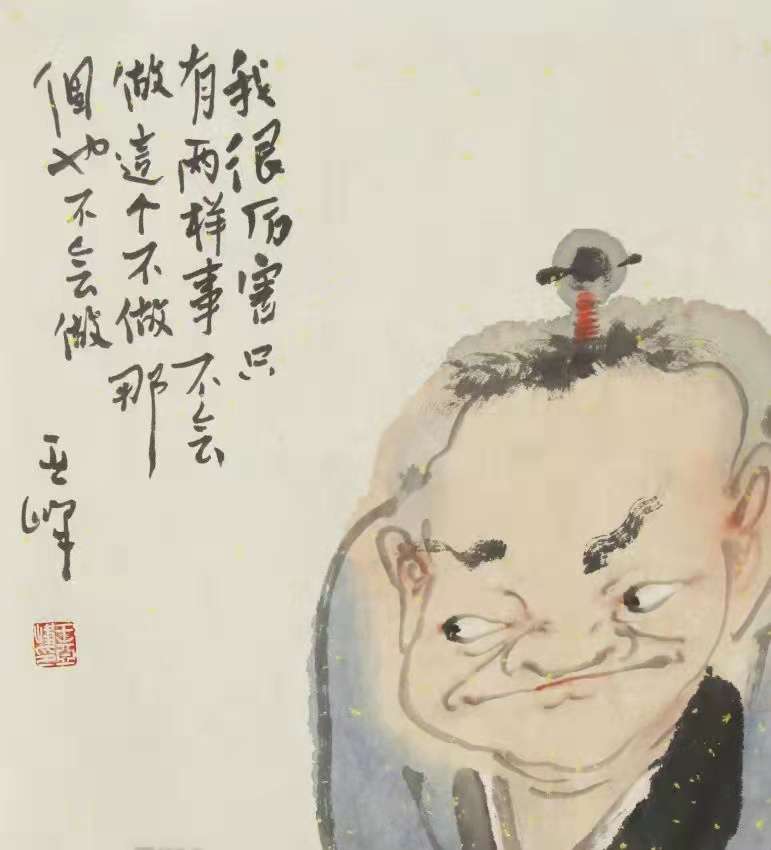 我很厉害只
有两样事不会
做這个不做那
個也不会做
亚峰